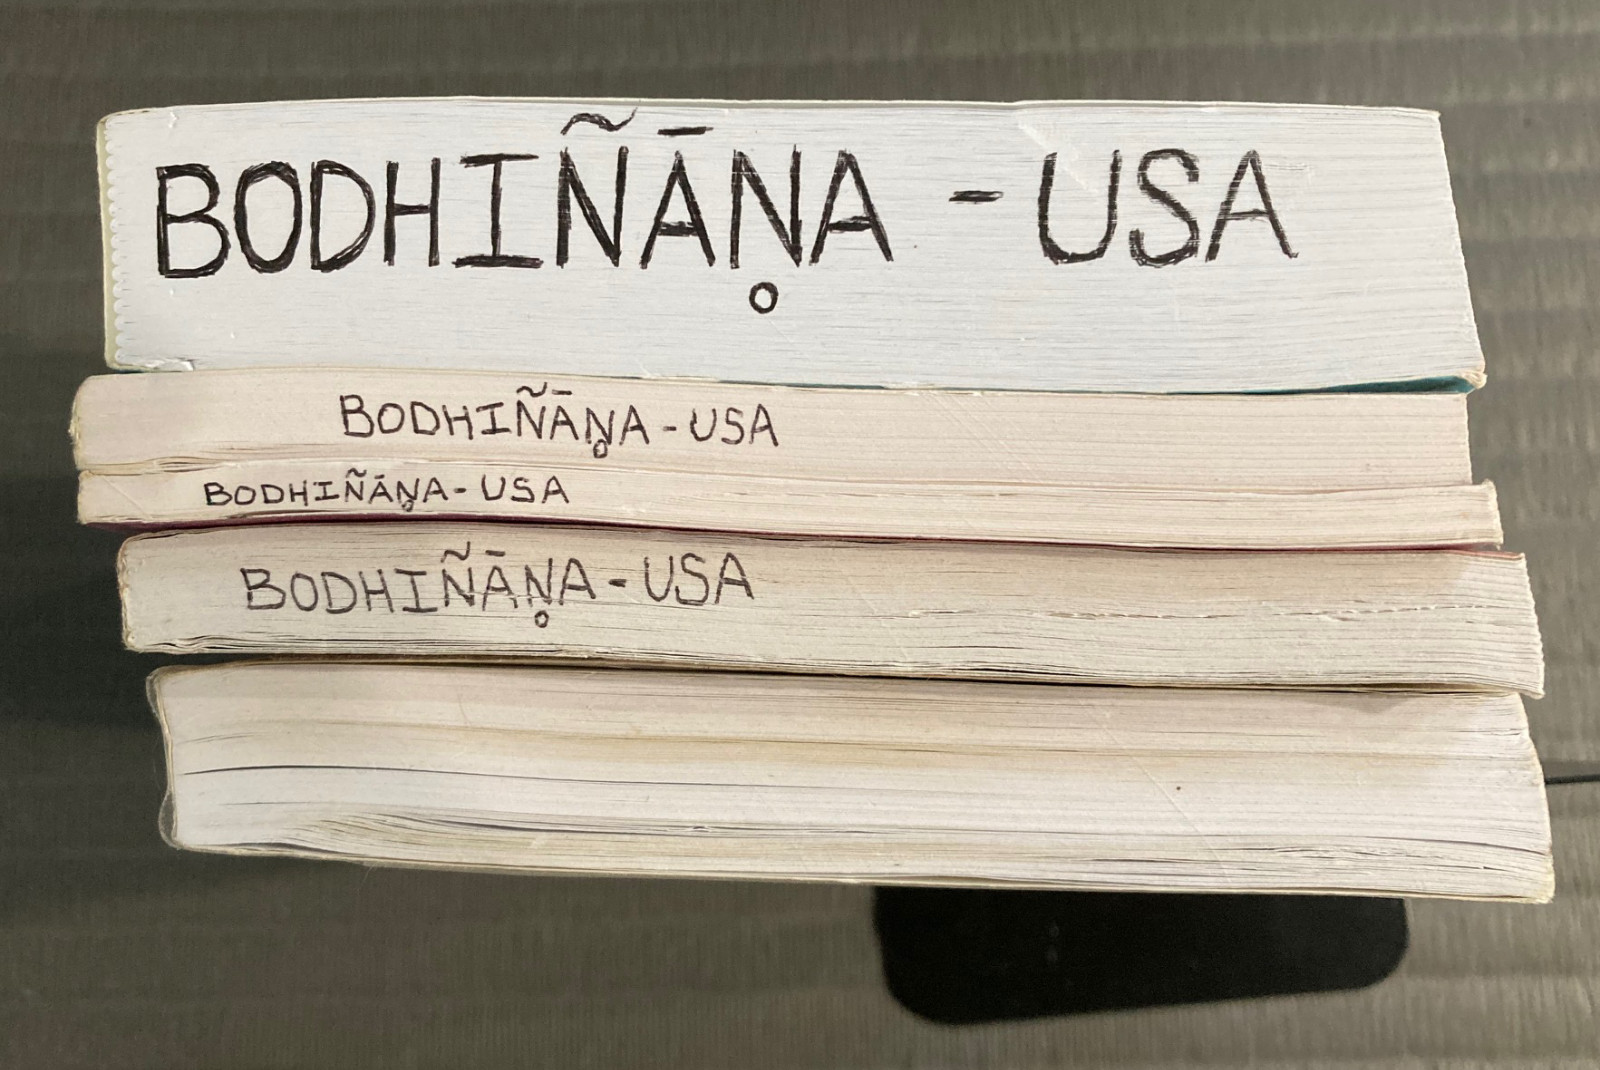 BODHIÑĀṆA - USA
BODHIÑĀṆA - USA
BODHIÑĀṆA - USA
BODHIÑĀṆA - USA